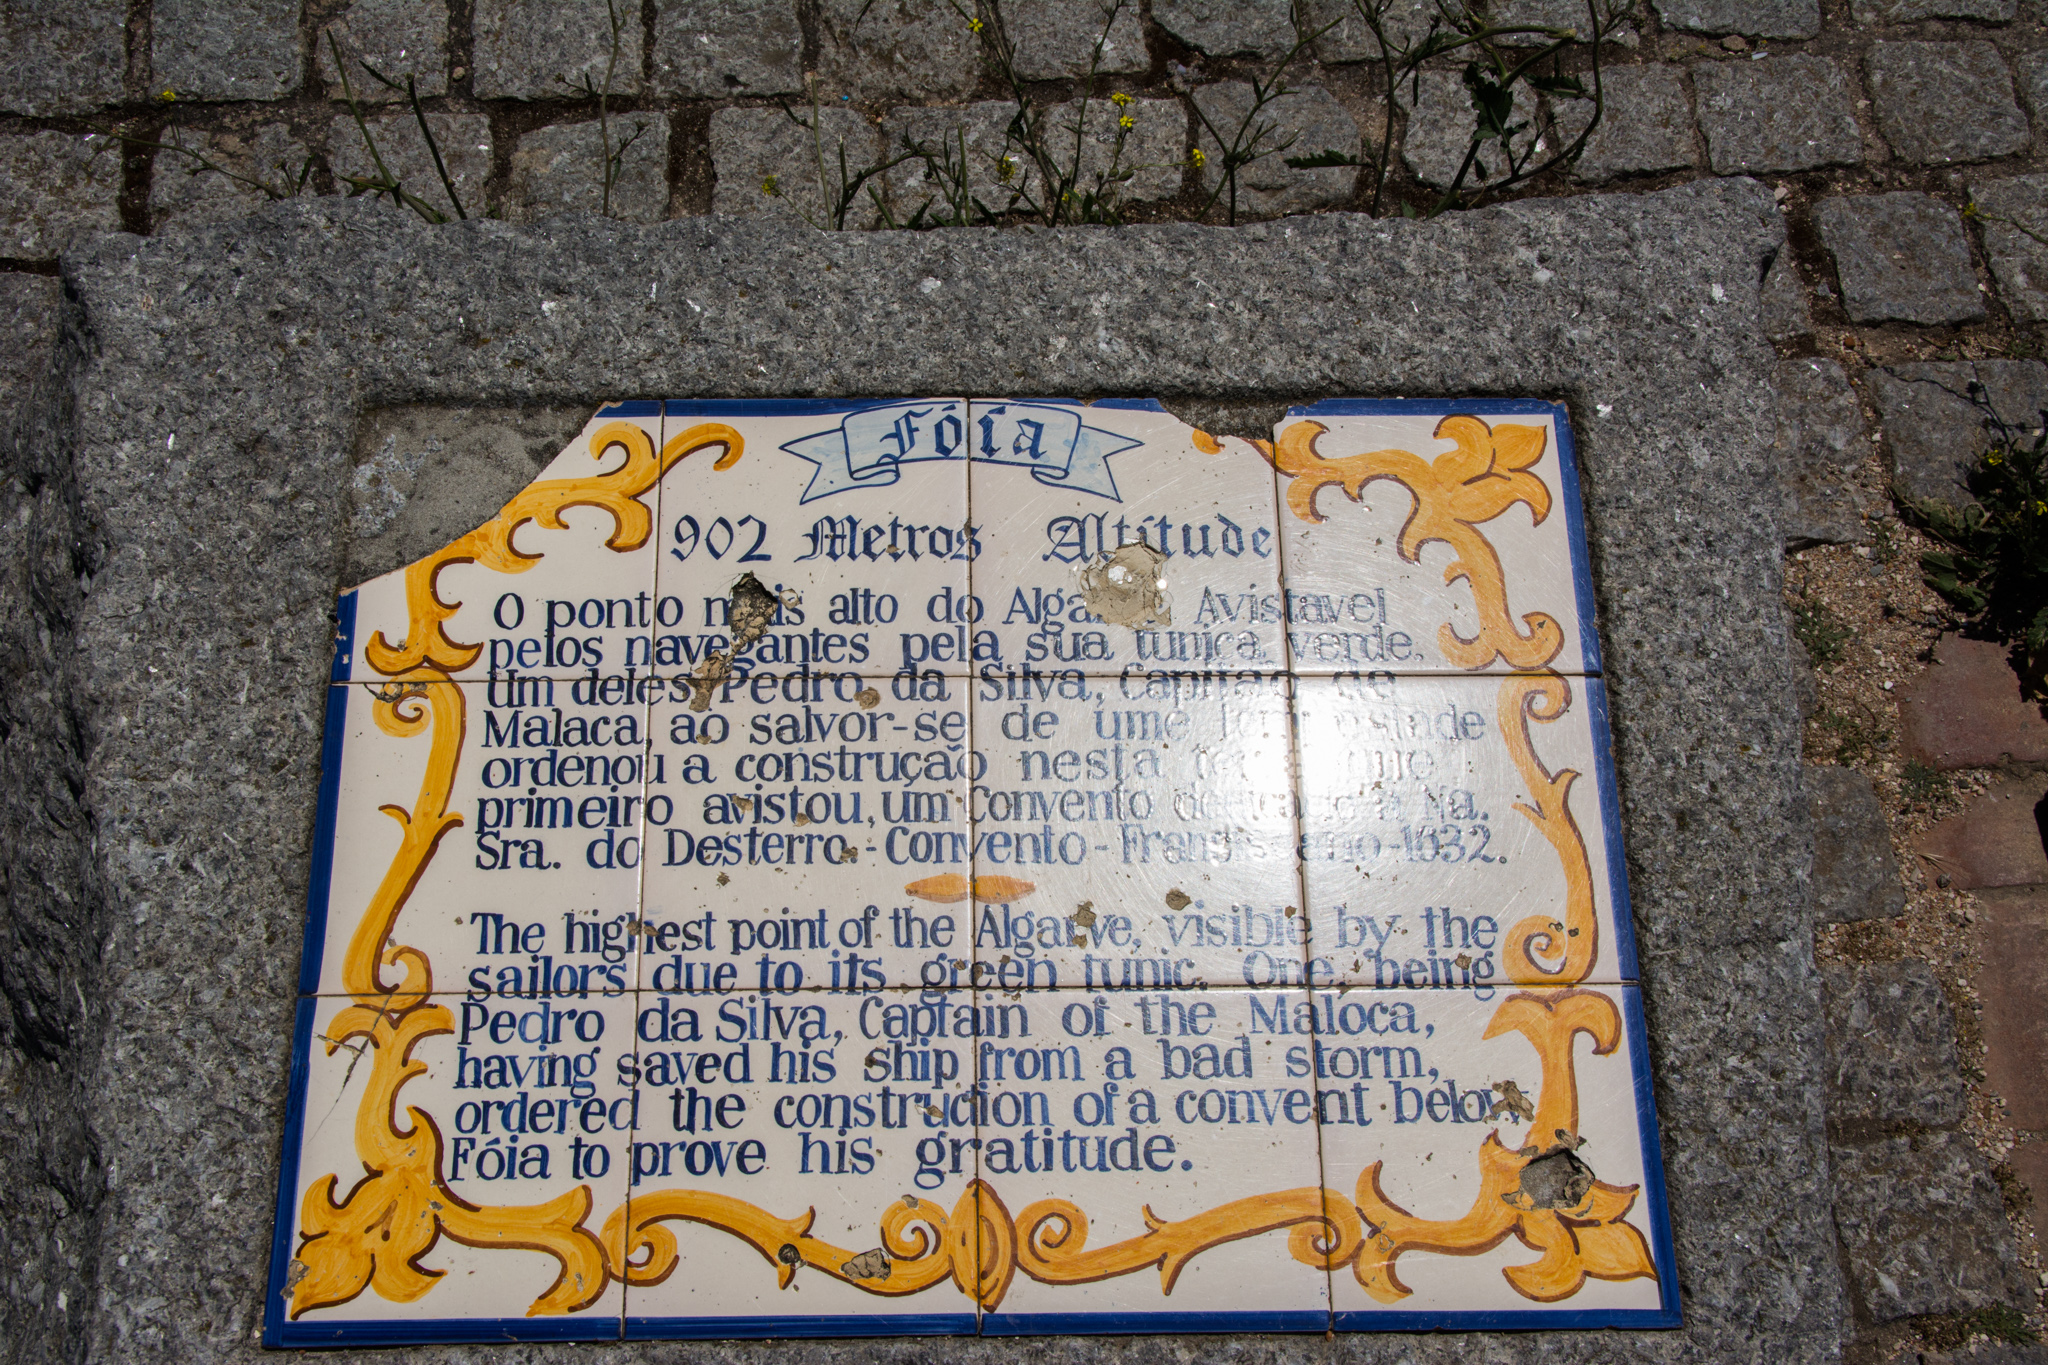 Fóia
902 Metros Altitude
O ponto mais alto do Algarve Avistavel
pelos navegantes pela sua tunica verde.
Um deles Pedro da Silva, Capitão de
Malaca, ao salvor-se de ume
ordenou a construção nesta que
primeiro avistou, um Convento a Na.
Sra. do Desterro. - Convento - ano-1632.
The highest point of the Algarve, visible by the
sailors due to its green tunic. One, being
Pedro da Silva, Captain of the Maloca,
having saved his ship from a bad storm,
ordered the construction of a convent below
Fóia to prove his gratitude.